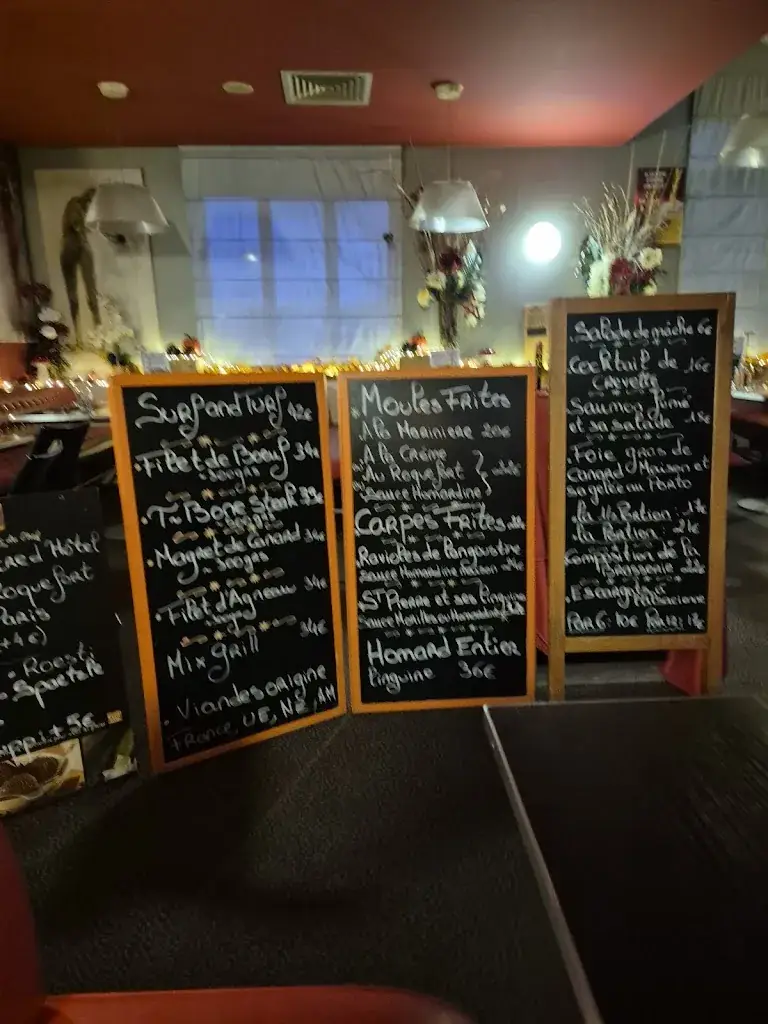 Hôtel
Roquefort
Paris
Roesti
Spaetzle
+ 5€
Surf and Turf 42€
• Filet de Boeuf 34€
300grs
• T. Bone Steak
• Magret de Canard 34€
300grs
• Filet d'Agneau 34€
Mix grill 34€
• Viandes origine
France, UE, NZ
Moules Frites
A la Mariniere
A la Crème
Au Roquefort
Sauce Homardine
Carpes Frites
Ravioles de langoustre
Sauce Homardine Maison
St Pierre et ses linguine
Sauce Morilles ou Homardine
Homard Entier
linguine 36€
Salade de mâche 6€
Cocktail de 16€
Crevette
Saumon fumé
et sa salade
Foie gras de
Canard Maison et
sa gelée au Porto
La 1/2 Portion :
La Portion :
Composition de la
Brasserie
• Escargots à l'Alsacienne
Par 6: 10€ Par 12: